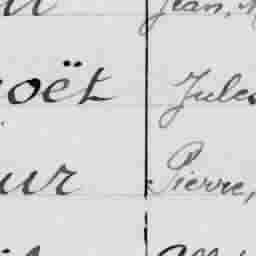 Jean,
oët Jules
ur Pierre,